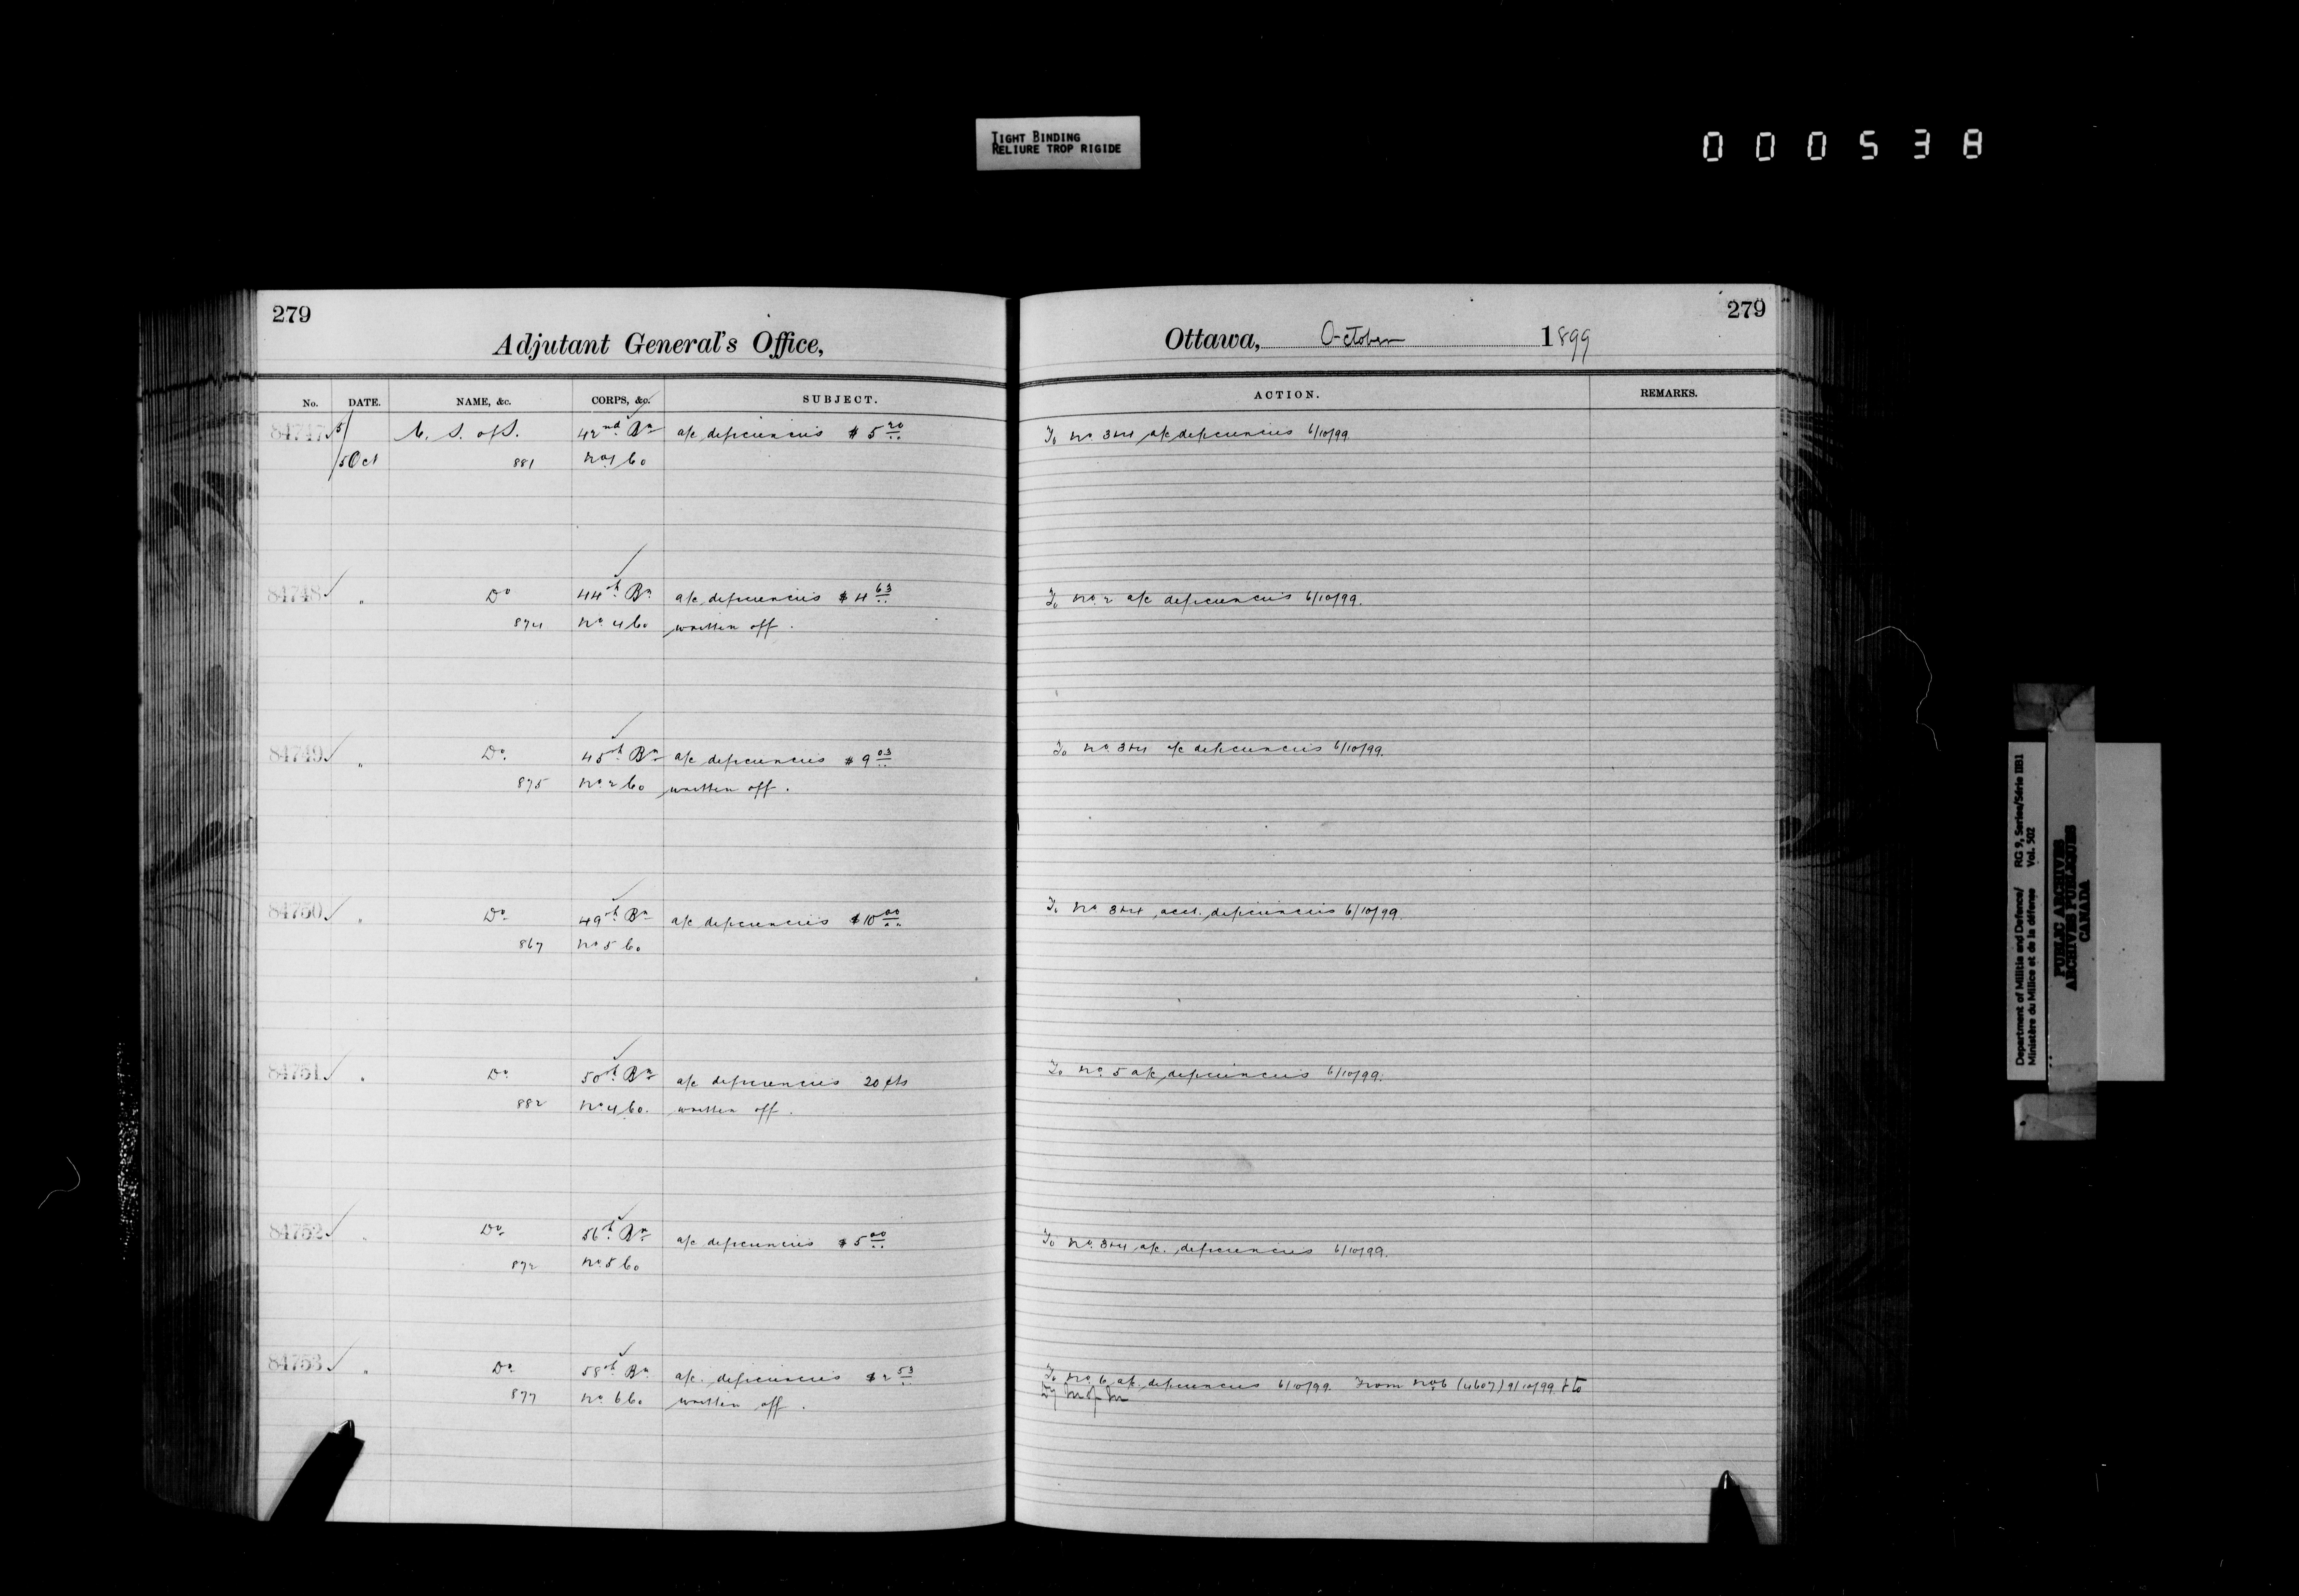 TIGHT BINDING
RELIURE TROP RIGIDE
000538
279
Adjutant General's Office,
No. DATE. NAME, &c. CORPS, &c. SUBJECT.
84747 5/ C. S. of S. 42nd Bn a/c deficiencies $5 20
5 Oct 881 No 1 Co
84748 " Do 44th Bn a/c deficiencies $4 63
874 No 4 Co written off.
84749 " Do 45th Bn a/c deficiencies $9 03
875 No 2 Co written off.
84750 " Do 49th Bn a/c deficiencies $10 00
867 No 5 Co
84751 " Do 50th Bn a/c deficiencies 20 cts
882 No 4 Co. written off.
84752 " Do 56th Bn a/c deficiencies $5 00
872 No 5 Co
84753 " Do 58th Bn a/c. deficiencies $2 53
877 No 6 Co. written off.
279
Ottawa, October 1899
ACTION. REMARKS.
To No 3+4 a/c deficiencies 6/10/99
To No 2 a/c deficiencies 6/10/99.
To No 3+4 a/c deficiencies 6/10/99.
To No 3+4 acct. deficiencies 6/10/99.
To No 5 a/c deficiencies 6/10/99.
To No 3+4 a/c. deficiencies 6/10/99.
To No 6 a/c deficiencies 6/10/99. From No 6 (4607) 9/10/99 + to
M of M
Department of Militia and Defence/ RG 9, Series/Série IIB1
Ministère du Milice et de la défense Vol. 502
PUBLIC ARCHIVES
ARCHIVES PUBLIQUES
CANADA